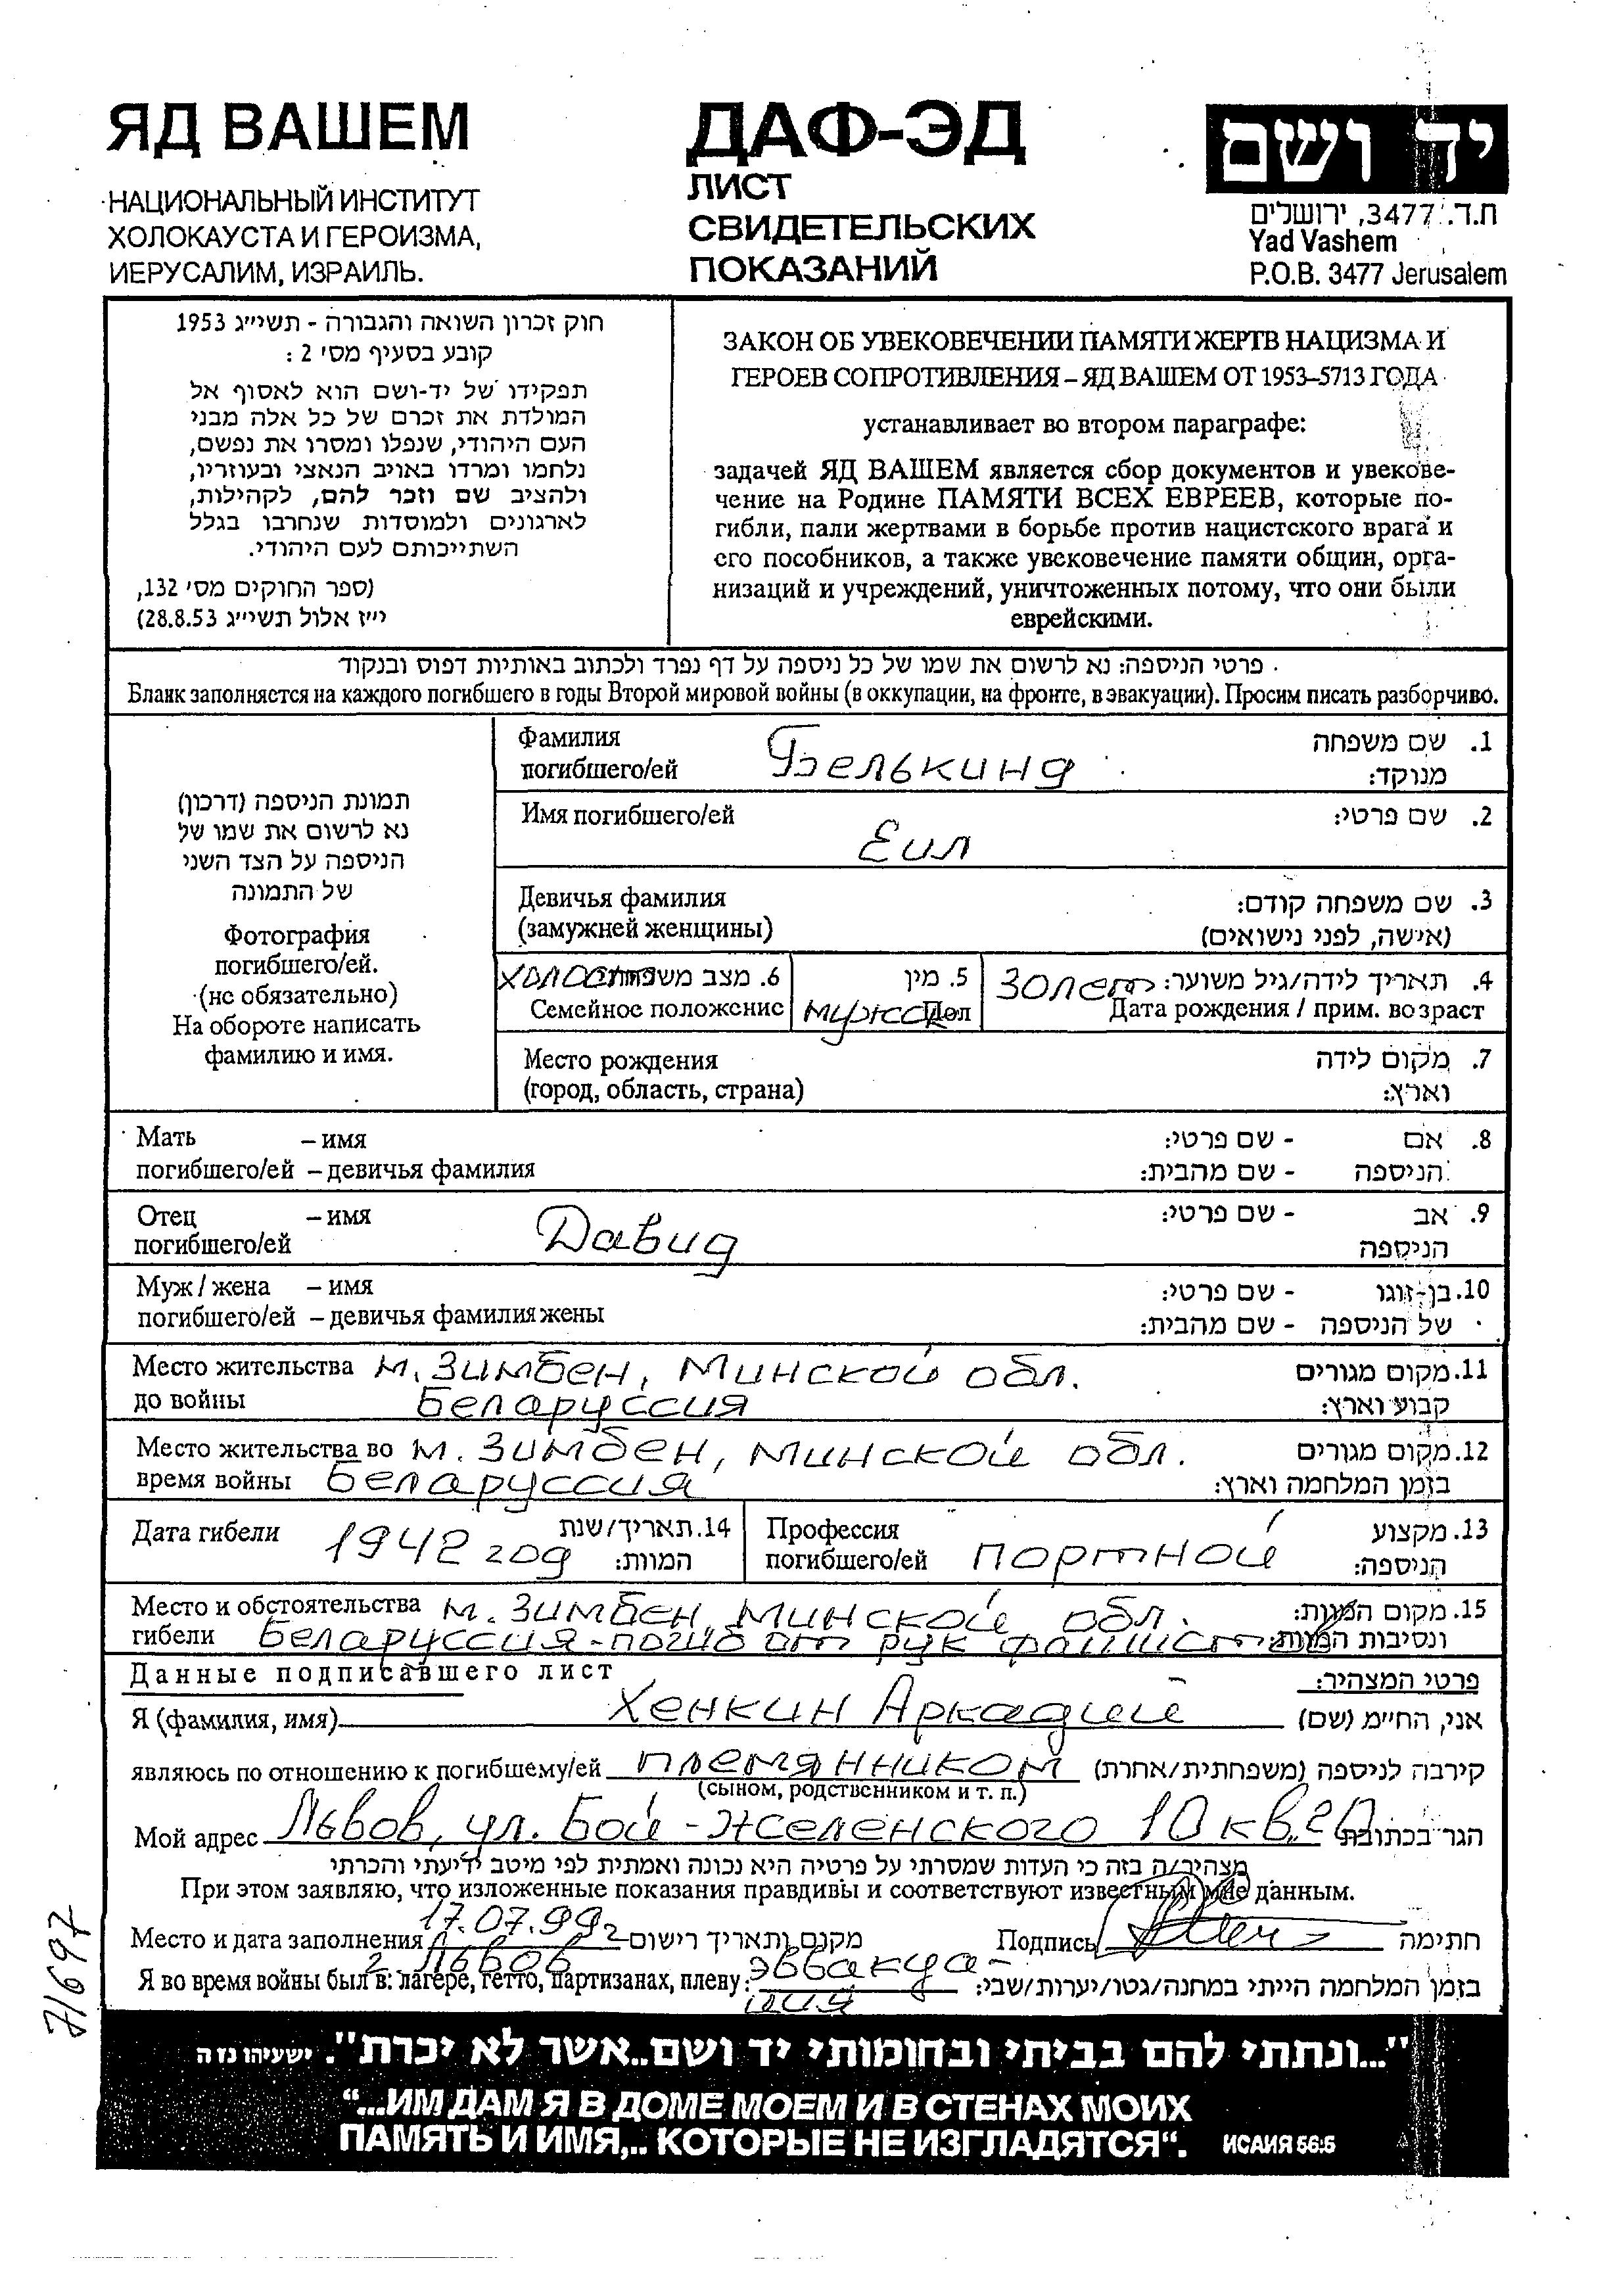 ЯД ВАШЕМ
НАЦИОНАЛЬНЫЙ ИНСТИТУТ
ХОЛОКАУСТА И ГЕРОИЗМА,
ИЕРУСАЛИМ, ИЗРАИЛЬ.
ДАФ-ЭД
ЛИСТ
СВИДЕТЕЛЬСКИХ
ПОКАЗАНИЙ
יד ושם
ת.ד. 3477, ירושלים
Yad Vashem
P.O.B. 3477 Jerusalem
חוק זכרון השואה והגבורה - תשי״ג 1953
קובע בסעיף מס׳ 2 :
תפקידו של יד-ושם הוא לאסוף אל
המולדת את זכרם של כל אלה מבני
העם היהודי, שנפלו ומסרו את נפשם,
נלחמו ומרדו באויב הנאצי ובעוזריו,
ולהציב שם וזכר להם, לקהילות,
לארגונים ולמוסדות שנחרבו בגלל
השתייכותם לעם היהודי.
(ספר החוקים מס׳ 132,
י״ז אלול תשי״ג 28.8.53)
ЗАКОН ОБ УВЕКОВЕЧЕНИИ ПАМЯТИ ЖЕРТВ НАЦИЗМА И
ГЕРОЕВ СОПРОТИВЛЕНИЯ – ЯД ВАШЕМ ОТ 1953–5713 ГОДА
устанавливает во втором параграфе:
задачей ЯД ВАШЕМ является сбор документов и увекове-
чение на Родине ПАМЯТИ ВСЕХ ЕВРЕЕВ, которые по-
гибли, пали жертвами в борьбе против нацистского врага и
его пособников, а также увековечение памяти общин, орга-
низаций и учреждений, уничтоженных потому, что они были
еврейскими.
פרטי הניספה: נא לרשום את שמו של כל ניספה על דף נפרד ולכתוב באותיות דפוס ובנקוד
Бланк заполняется на каждого погибшего в годы Второй мировой войны (в оккупации, на фронте, в эвакуации). Просим писать разборчиво.
תמונת הניספה (דרכון)
נא לרשום את שמו של
הניספה על הצד השני
של התמונה
Фотография
погибшего/ей.
(не обязательно)
На обороте написать
фамилию и имя.
Фамилия погибшего/ей Белькинд 1. שם משפחה מנוקד:
Имя погибшего/ей Еил 2. שם פרטי:
Девичья фамилия 3. שם משפחה קודם:
(замужней женщины) (אישה, לפני נישואים)
холост 6. מצב משפחתי 5. מין 30 лет 4. תאריך לידה/גיל משוער:
Семейное положение мужс Пол Дата рождения / прим. возраст
Место рождения 7. מקום לידה
(город, область, страна) וארץ:
Мать – имя - שם פרטי: 8. אם
погибшего/ей – девичья фамилия - שם מהבית: הניספה
Отец – имя Давид - שם פרטי: 9. אב
погибшего/ей הניספה
Муж / жена – имя - שם פרטי: 10. בן-זוגו
погибшего/ей – девичья фамилия жены - שם מהבית: של הניספה
Место жительства м. Зимбен, Минской обл. 11. מקום מגורים
до войны Беларуссия קבוע וארץ:
Место жительства во м. Зимбен, Минской обл. 12. מקום מגורים
время войны Беларуссия בזמן המלחמה וארץ:
Дата гибели 1942 год 14. תאריך/שנת המוות:
Профессия погибшего/ей портной 13. מקצוע הניספה:
Место и обстоятельства м. Зимбен Минской обл. 15. מקום המוות:
гибели Беларуссия - погиб от рук фашистов ונסיבות המוות:
Данные подписавшего лист פרטי המצהיר:
Я (фамилия, имя) Хенкин Аркадий אני, החי״מ (שם)
являюсь по отношению к погибшему/ей племянником קירבה לניספה (משפחתית/אחרת)
(сыном, родственником и т. п.)
Мой адрес Львов, ул. Бой-Желенского 10 кв. 20 הגר בכתובת
מצהיר/ה בזה כי העדות שמסרתי על פרטיה היא נכונה ואמתית לפי מיטב ידיעתי והכרתי
При этом заявляю, что изложенные показания правдивы и соответствуют известным мне данным.
17.07.99г
Место и дата заполнения г. Львов מקום ותאריך רישום Подпись חתימה
Я во время войны был в: лагере, гетто, партизанах, плену: эввакуа- בזמן המלחמה הייתי במחנה/גטו/יערות/שבי:
ция
71697
"...ונתתי להם בביתי ובחומותי יד ושם..אשר לא יכרת". ישעיהו נז ה
“...ИМ ДАМ Я В ДОМЕ МОЕМ И В СТЕНАХ МОИХ
ПАМЯТЬ И ИМЯ,.. КОТОРЫЕ НЕ ИЗГЛАДЯТСЯ“. ИСАИЯ 56:5